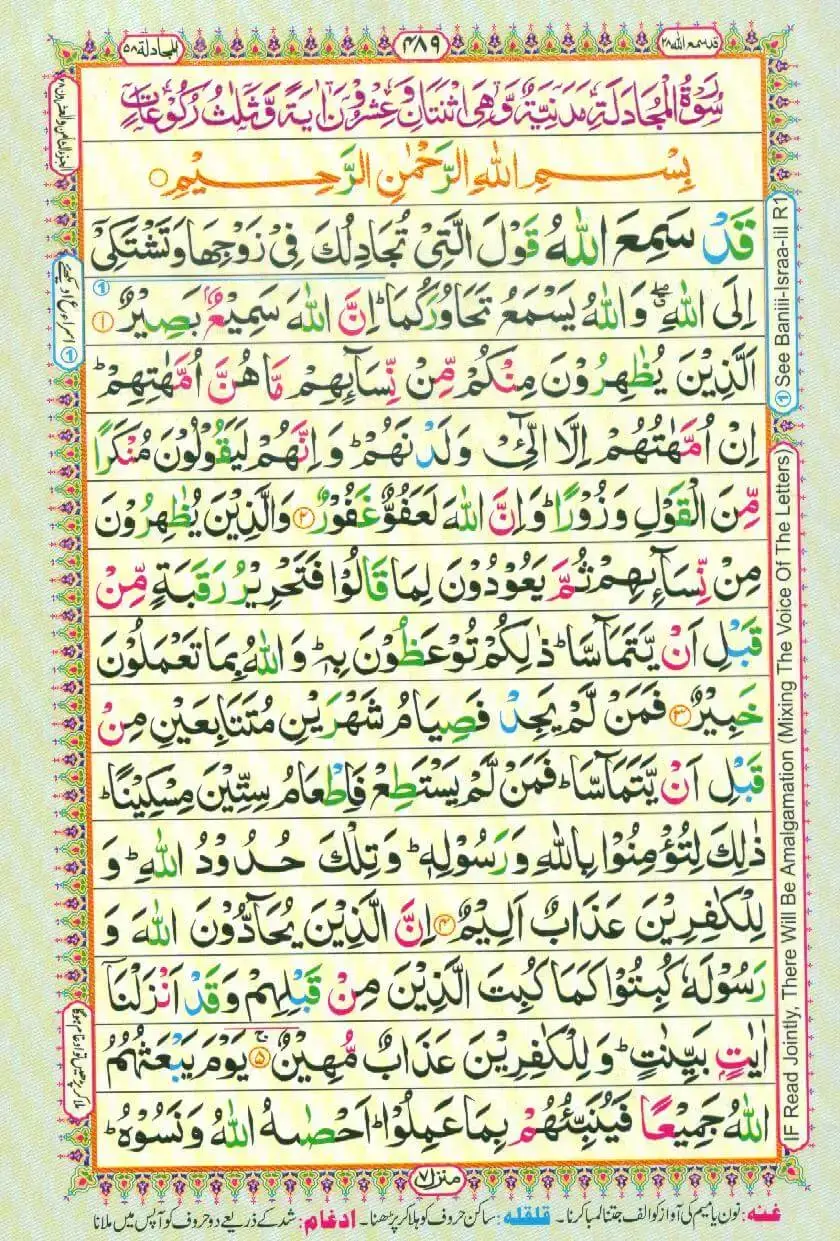 قد سمع الله ٢٨
٤٨٩
المجادلة ٥٨
سُوْرَةُ الْمُجَادَلَةِ مَدَنِيَّةٌ وَّهِىَ اثْنَتَانِ وَعِشْرُوْنَ اٰيَةً وَّثَلٰثُ رُكُوْعَاتٍ
بِسْمِ اللّٰهِ الرَّحْمٰنِ الرَّحِيْمِ ○
قَدْ سَمِعَ اللّٰهُ قَوْلَ الَّتِىْ تُجَادِلُكَ فِىْ زَوْجِهَا وَتَشْتَكِىْۤ
اِلَى اللّٰهِ ۖ وَاللّٰهُ يَسْمَعُ تَحَاوُرَكُمَا ؕ اِنَّ اللّٰهَ سَمِيْعٌۢ بَصِيْرٌ ①
اَلَّذِيْنَ يُظٰهِرُوْنَ مِنْكُمْ مِّنْ نِّسَآىِٕهِمْ مَّا هُنَّ اُمَّهٰتِهِمْ ؕ
اِنْ اُمَّهٰتُهُمْ اِلَّا الّٰٓـِٔىْ وَلَدْنَهُمْ ؕ وَاِنَّهُمْ لَيَقُوْلُوْنَ مُنْكَرًا
مِّنَ الْقَوْلِ وَزُوْرًا ؕ وَاِنَّ اللّٰهَ لَعَفُوٌّ غَفُوْرٌ ② وَالَّذِيْنَ يُظٰهِرُوْنَ
مِنْ نِّسَآىِٕهِمْ ثُمَّ يَعُوْدُوْنَ لِمَا قَالُوْا فَتَحْرِيْرُ رَقَبَةٍ مِّنْ
قَبْلِ اَنْ يَّتَمَآسَّا ؕ ذٰلِكُمْ تُوْعَظُوْنَ بِهٖ ؕ وَاللّٰهُ بِمَا تَعْمَلُوْنَ
خَبِيْرٌ ③ فَمَنْ لَّمْ يَجِدْ فَصِيَامُ شَهْرَيْنِ مُتَتَابِعَيْنِ مِنْ
قَبْلِ اَنْ يَّتَمَآسَّا ؕ فَمَنْ لَّمْ يَسْتَطِعْ فَاِطْعَامُ سِتِّيْنَ مِسْكِيْنًا ؕ
ذٰلِكَ لِتُؤْمِنُوْا بِاللّٰهِ وَرَسُوْلِهٖ ؕ وَتِلْكَ حُدُوْدُ اللّٰهِ ؕ وَ
لِلْكٰفِرِيْنَ عَذَابٌ اَلِيْمٌ ④ اِنَّ الَّذِيْنَ يُحَآدُّوْنَ اللّٰهَ وَ
رَسُوْلَهٗ كُبِتُوْا كَمَا كُبِتَ الَّذِيْنَ مِنْ قَبْلِهِمْ وَقَدْ اَنْزَلْنَاۤ
اٰيٰتٍۭ بَيِّنٰتٍ ؕ وَلِلْكٰفِرِيْنَ عَذَابٌ مُّهِيْنٌ ۚ ⑤ يَوْمَ يَبْعَثُهُمُ
اللّٰهُ جَمِيْعًا فَيُنَبِّئُهُمْ بِمَا عَمِلُوْا ؕ اَحْصٰىهُ اللّٰهُ وَنَسُوْهُ ؕ
منزل ٧
غنه: نون یا میم کی آواز کو الف جتنا لمبا کرنا۔ قلقلہ: ساکن حروف کو ہلا کر پڑھنا۔ ادغام: شد کے ذریعے دو حروف کو آپس میں ملانا
① See Baniii-Israa-lil R1
IF Read Jointly, There Will Be Amalgamation (Mixing The Voice Of The Letters)